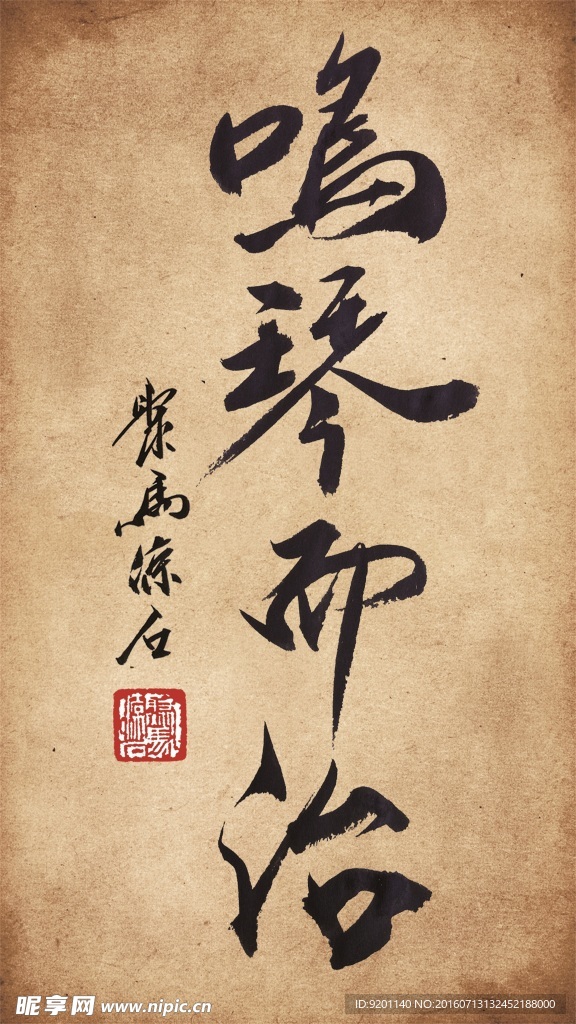 鳴琴而治
聚馬涼石
昵享网 www.nipic.cn
ID:9201140 NO:20160713132452188000